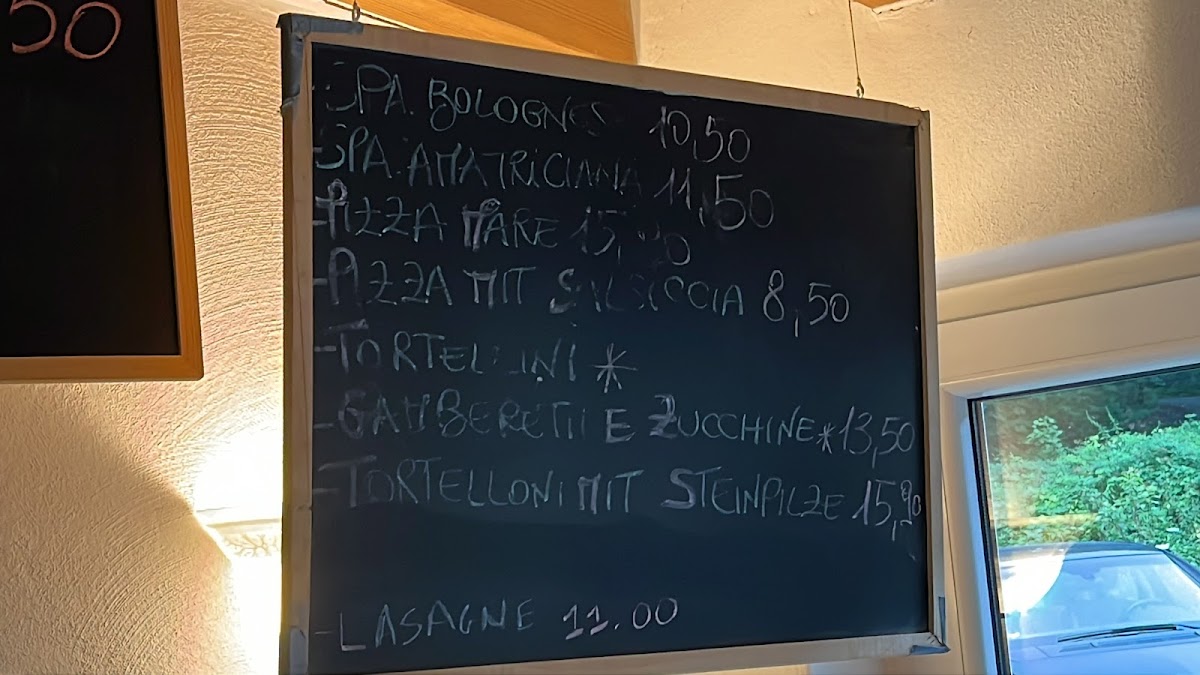 50
-SPA. BOLOGNES 10,50
-SPA. AMATRICIANA 11,50
-PIZZA MARE 15,90
-PIZZA MIT SALSICCIA 8,50
-TORTELLINI *
-GAMBERETTI E ZUCCHINE * 13,50
-TORTELLONI MIT STEINPILZE 15,90
-LASAGNE 11.00